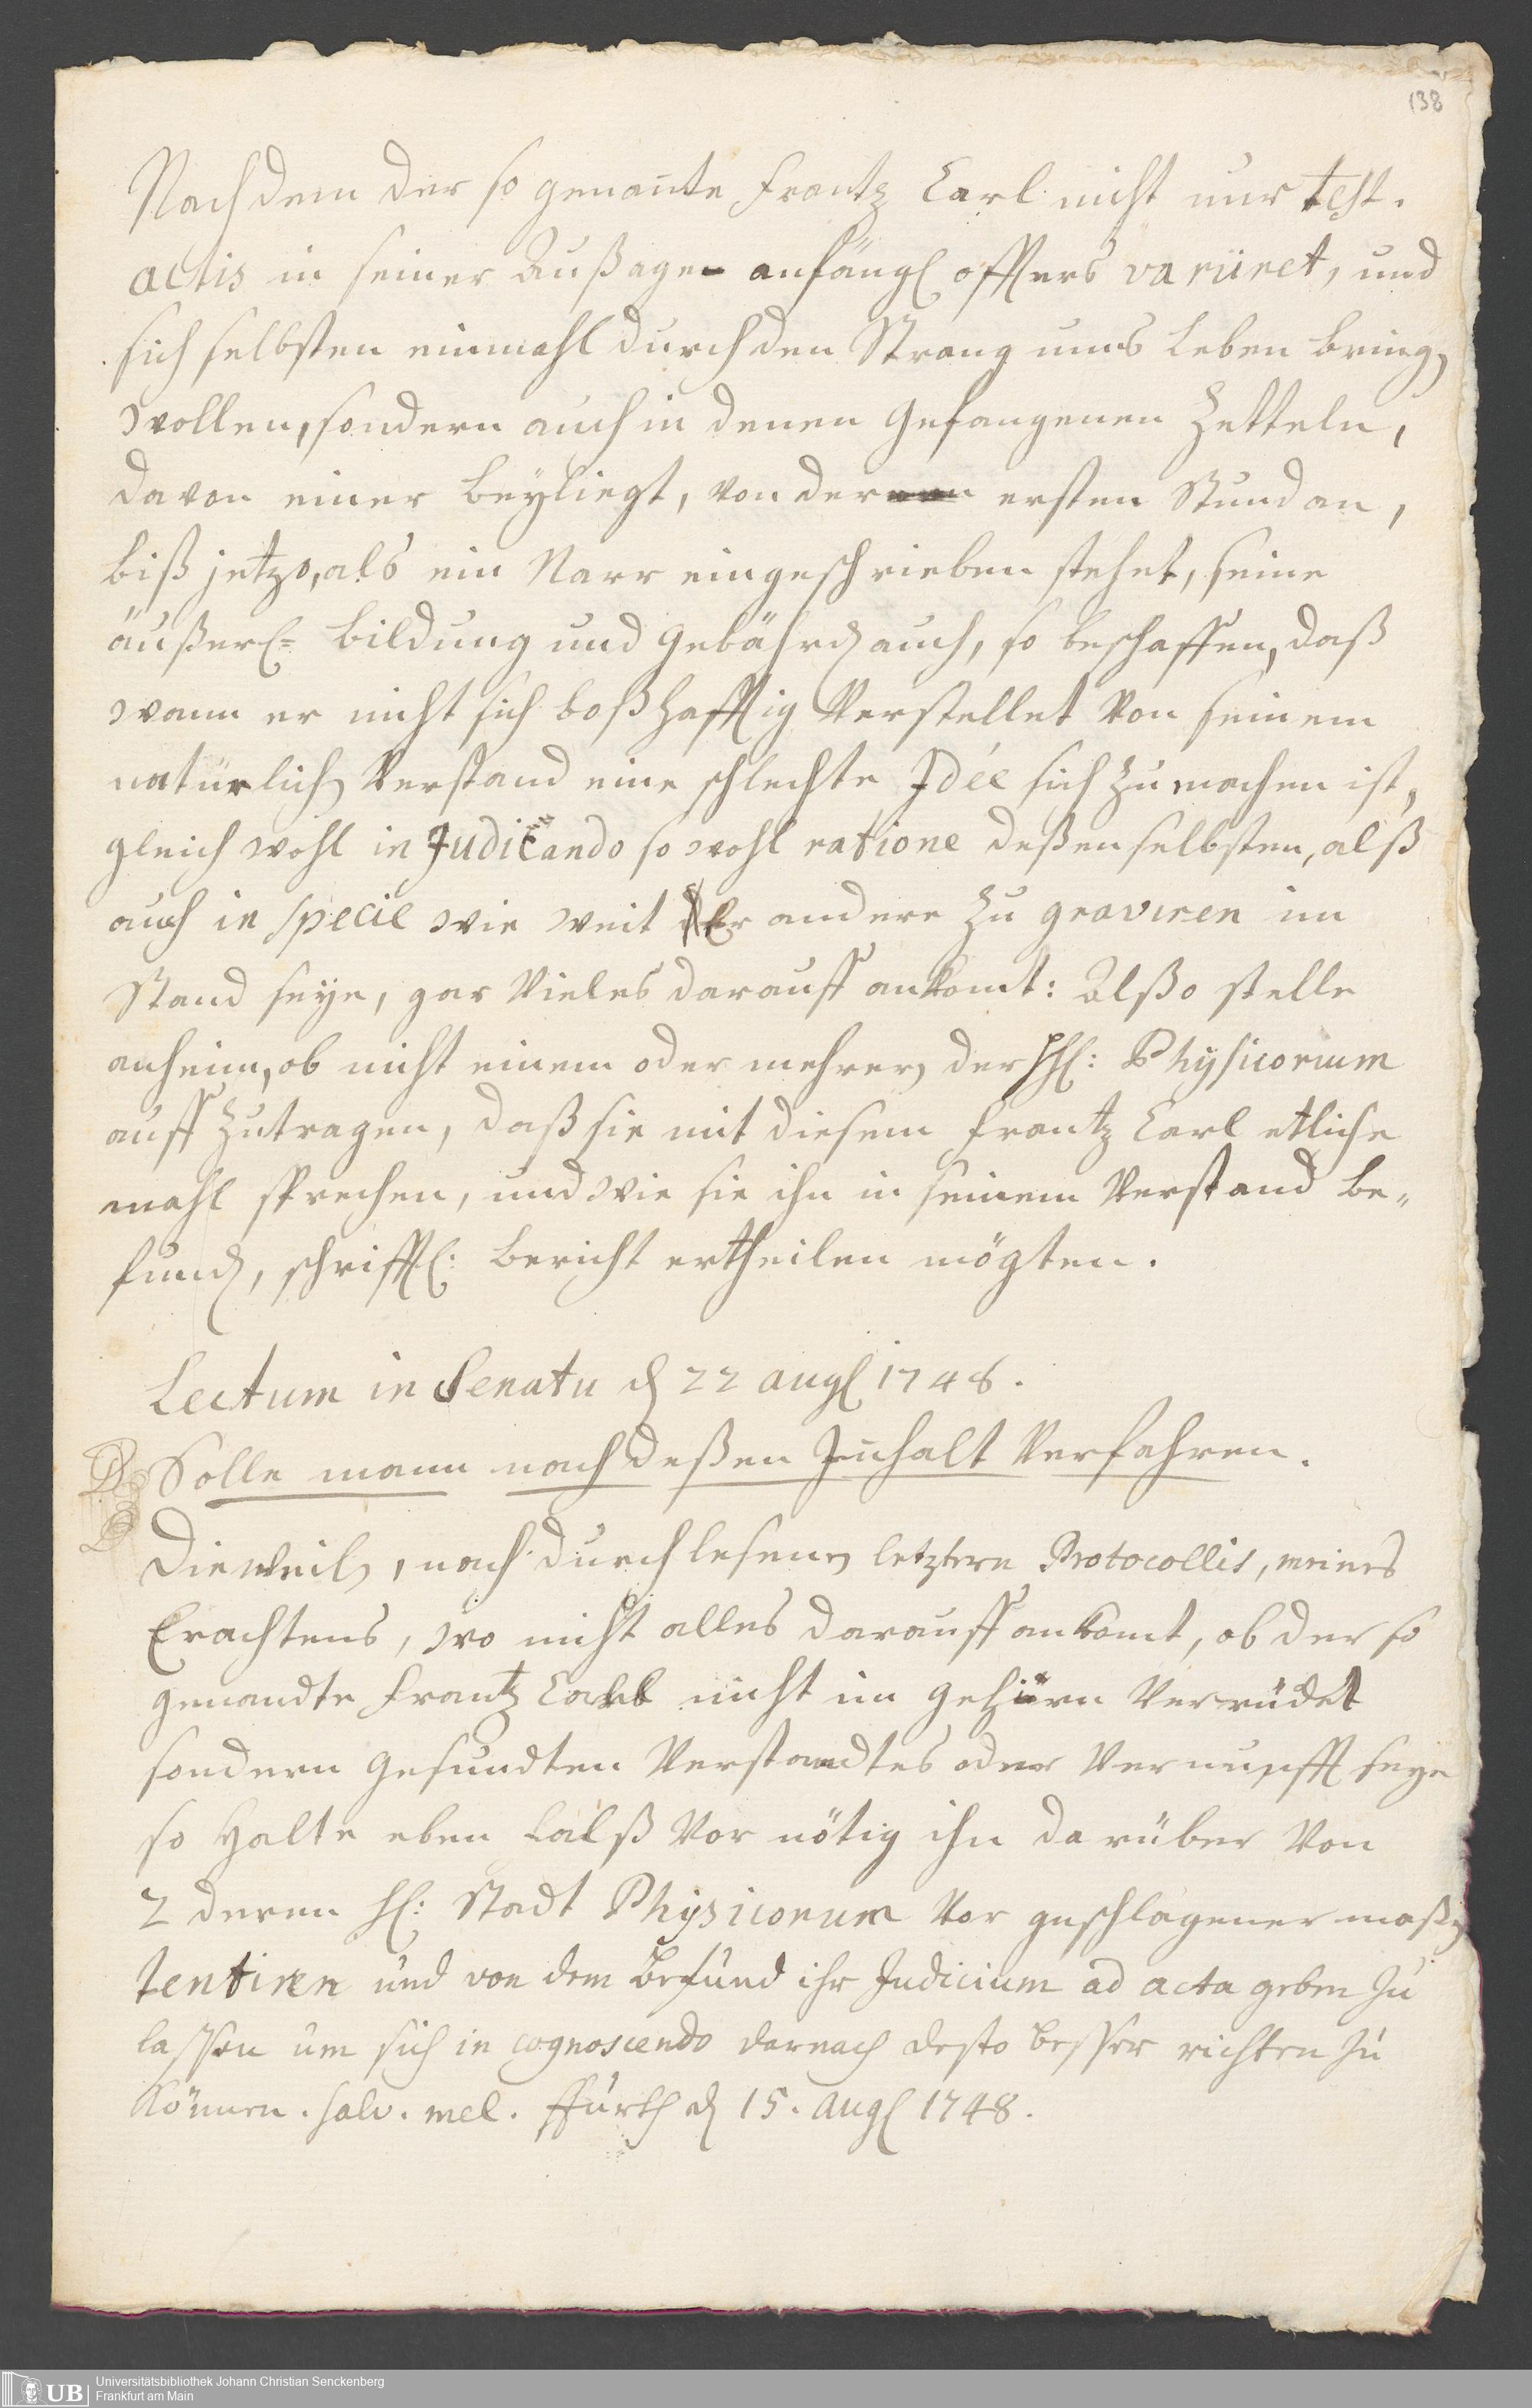 138
Nachdem der so genante Frantz Carl nicht nur test.
actis in seiner Außage anfängl öffters variiret, und
sich selbsten einmahl durch den Strang ums Leben bring
wollen, sondern auch in denen Gefangenen Zetteln,
davon einer beyliegt, von der ersten Stund an,
biß jetzo, als ein Narr eingeschrieben stehet, seine
äußerl= bildung und Gebährd auch, so beschaffen, daß
wann er nicht sich boßhafftig verstellet von seinem
natürlich Verstand eine schlechte Idée sich zu machen ist,
gleich wohl in Judicando so wohl ratione deßen selbsten, alß
auch in specie wie weit Er andere zu graviren im
Stand seye, gar vieles darauff ankomt: Alßo stelle
anheim, ob nicht einem oder mehrern der HH: Physicorum
auffzutragen, daß sie mit diesem Frantz Carl etliche
mahl sprechen, und wie sie ihn in seinem Verstand be„
fund, schrifftl: bericht ertheilen mögten.
Lectum in Senatu d 22 Aug 1748.
Solle mann nach deßen Inhalt verfahren.
Dieweil, nach durchlesenen letztern Protocollis, meines
Erachtens, wo nicht alles darauff ankomt, ob der so
genandte Frantz Carl nicht im Gehürn verrüdet
sondern gesundten Verstandtes oder Vernunfft seye
so halte eben falß vor nötig ihn darüber von
2 deren H: Stadt Physicorum vor geschlagener maßen
tentiren und von dem Befund ihr Judicium ad acta geben zu
lassen um sich in cognoscendo darnach desto besser richten zu
können. salv. mel. ffurth d 15. Aug 1748.
UB
Universitätsbibliothek Johann Christian Senckenberg
Frankfurt am Main